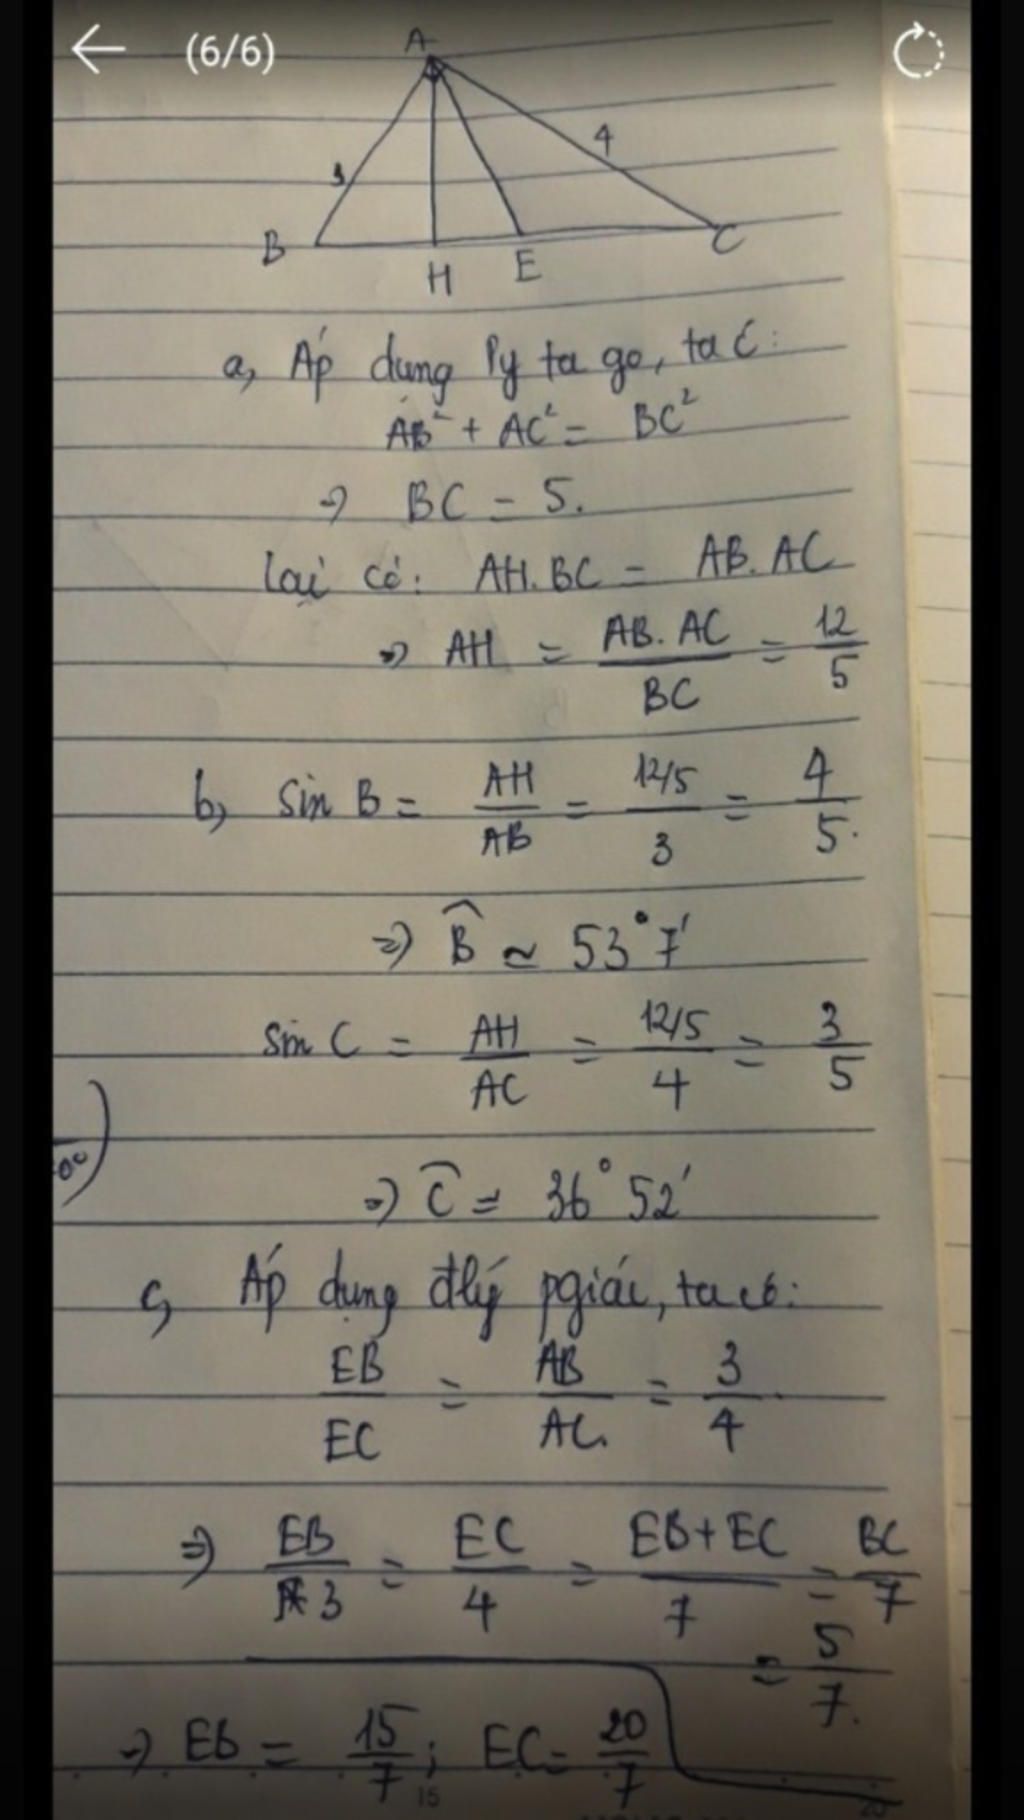 (6/6)
A
3
4
B
H
E
C
a, Áp dụng Py ta go, ta c:
AB² + AC² = BC²
=> BC = 5.
Lại có: AH.BC = AB.AC
=> AH = AB.AC / BC = 12/5
b, Sin B = AH/AB = 12/5 / 3 = 4/5.
=> B̂ ≃ 53°7'
Sin C = AH/AC = 12/5 / 4 = 3/5
=> Ĉ = 36°52'
c, Áp dụng đlý pgiác, ta có:
EB/EC = AB/AC = 3/4
=> EB/3 = EC/4 = EB+EC / 7 = BC/7
= 5/7.
=> EB = 15/7; EC = 20/7
15
20